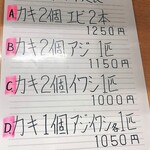 A カキ2個 エビ2本
1250円
B カキ2個 アジ 1匹
1150円
C カキ2個イワシ1匹
1000円
D カキ1個アジイワシ各1匹
1050円